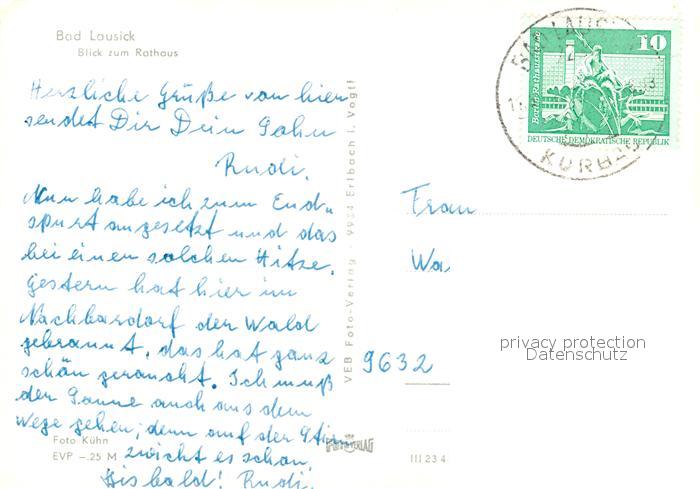 Bad Lausick
Blick zum Rathaus
Herzliche Grüße von hier
sendet Dir Dein Sohn
Rudi.
Nun habe ich zum End-
spurt angesetzt und das
bei einer solchen Hitze.
Gestern hat hier im
Nachbardorf der Wald
gebrannt, das hat ganz
schön geraucht. Ich muß
der Sonne auch aus dem
Wege gehen; denn auf der Stirn
zwickt es schon.
Bis bald! Rudi.
Foto Kühn
EVP -.25 M
VEB Foto-Verlag 9934 Erlbach i. Vogtl
III 23 4
Berlin Rathausstraße
10
DEUTSCHE DEMOKRATISCHE REPUBLIK
BAD LAUSICK
Frau
Wa
9632
privacy protection
Datenschutz